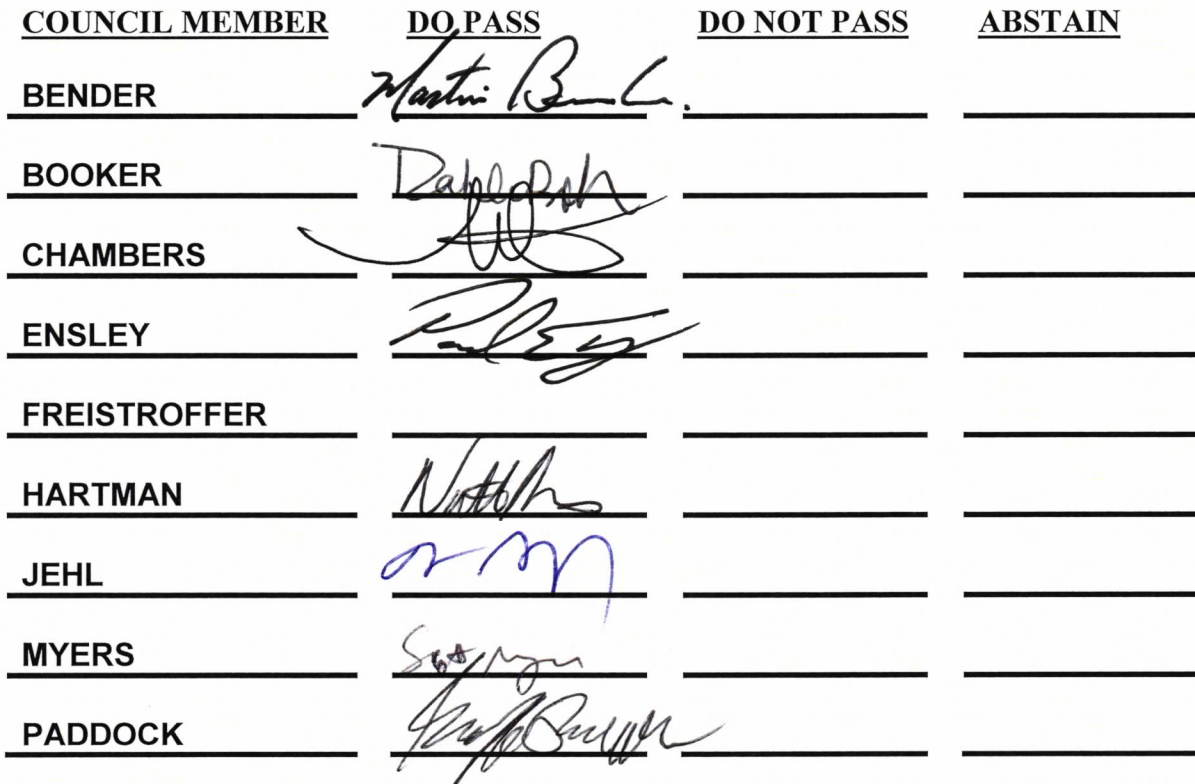 COUNCIL MEMBER DO PASS DO NOT PASS ABSTAIN
BENDER Martin
BOOKER
CHAMBERS
ENSLEY Paul
FREISTROFFER
HARTMAN
JEHL
MYERS
PADDOCK